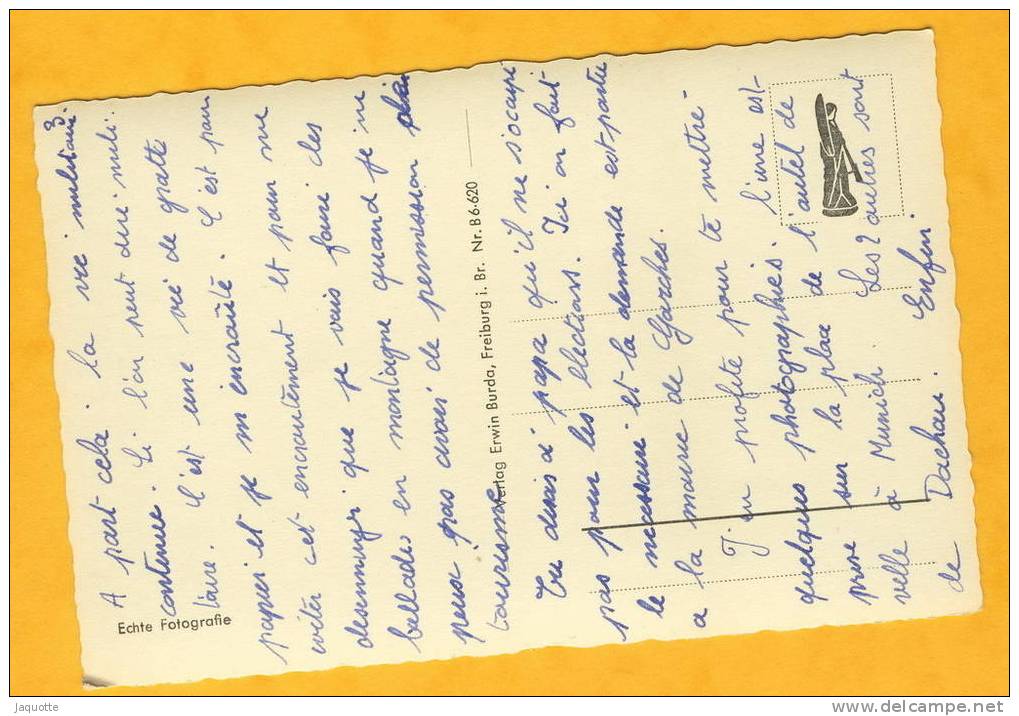 3.
A part cela. la vie militaire
continue. Si l'on peut dire mili-
taire. C'est une vie de gratte
papier et je m'encroûte. C'est pour
éviter cet encroutement et pour me
désennuyer que je vais faire des
ballades en montagne quand je ne
peux pas avoir de permission
tourisme
Tu diras à papa qu'il ne s'occupe
pas pour les élections. Ici on fait
le nécessaire et la demande est partie
a la mairie de Garches.
J'en profite pour te mettre
quelques photographies l'une est
prise sur la place de l'autel de
ville à Munich. Les 2 autres sont
de Dachau. Enfin.
Echte Fotografie
Verlag Erwin Burda, Freiburg i. Br. Nr. B6-620
Jaquotte
www.delcampe.net